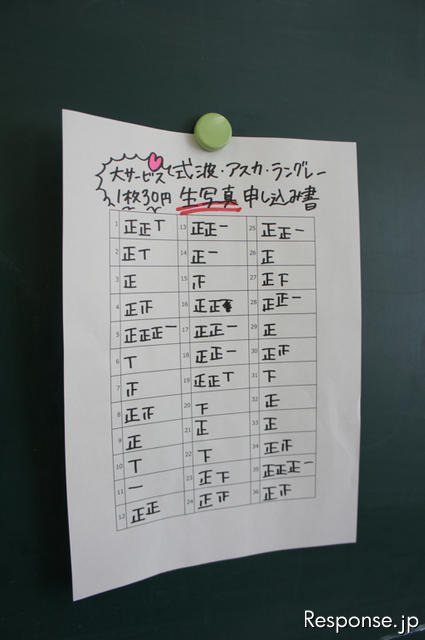 大サービス 式波・アスカ・ラングレー
1枚30円 生写真申し込み書
1 正正丅 13 正正一 25 正正一
2 正丅 14 正一 26 正
3 正 15 𤴓 27 正下
4 正𤴓 16 正正 28 正正一
5 正正正一 17 正正一 29 正
6 丅 18 正正一 30 正𤴓
7 𤴓 19 正正丅 31 下
8 正𤴓 20 下 32 正
9 正 21 正 33 正
10 丅 22 下 34 正𤴓
11 一 23 正下 35 正正正一
12 正正 24 正𤴓 36 正𤴓
Response.jp